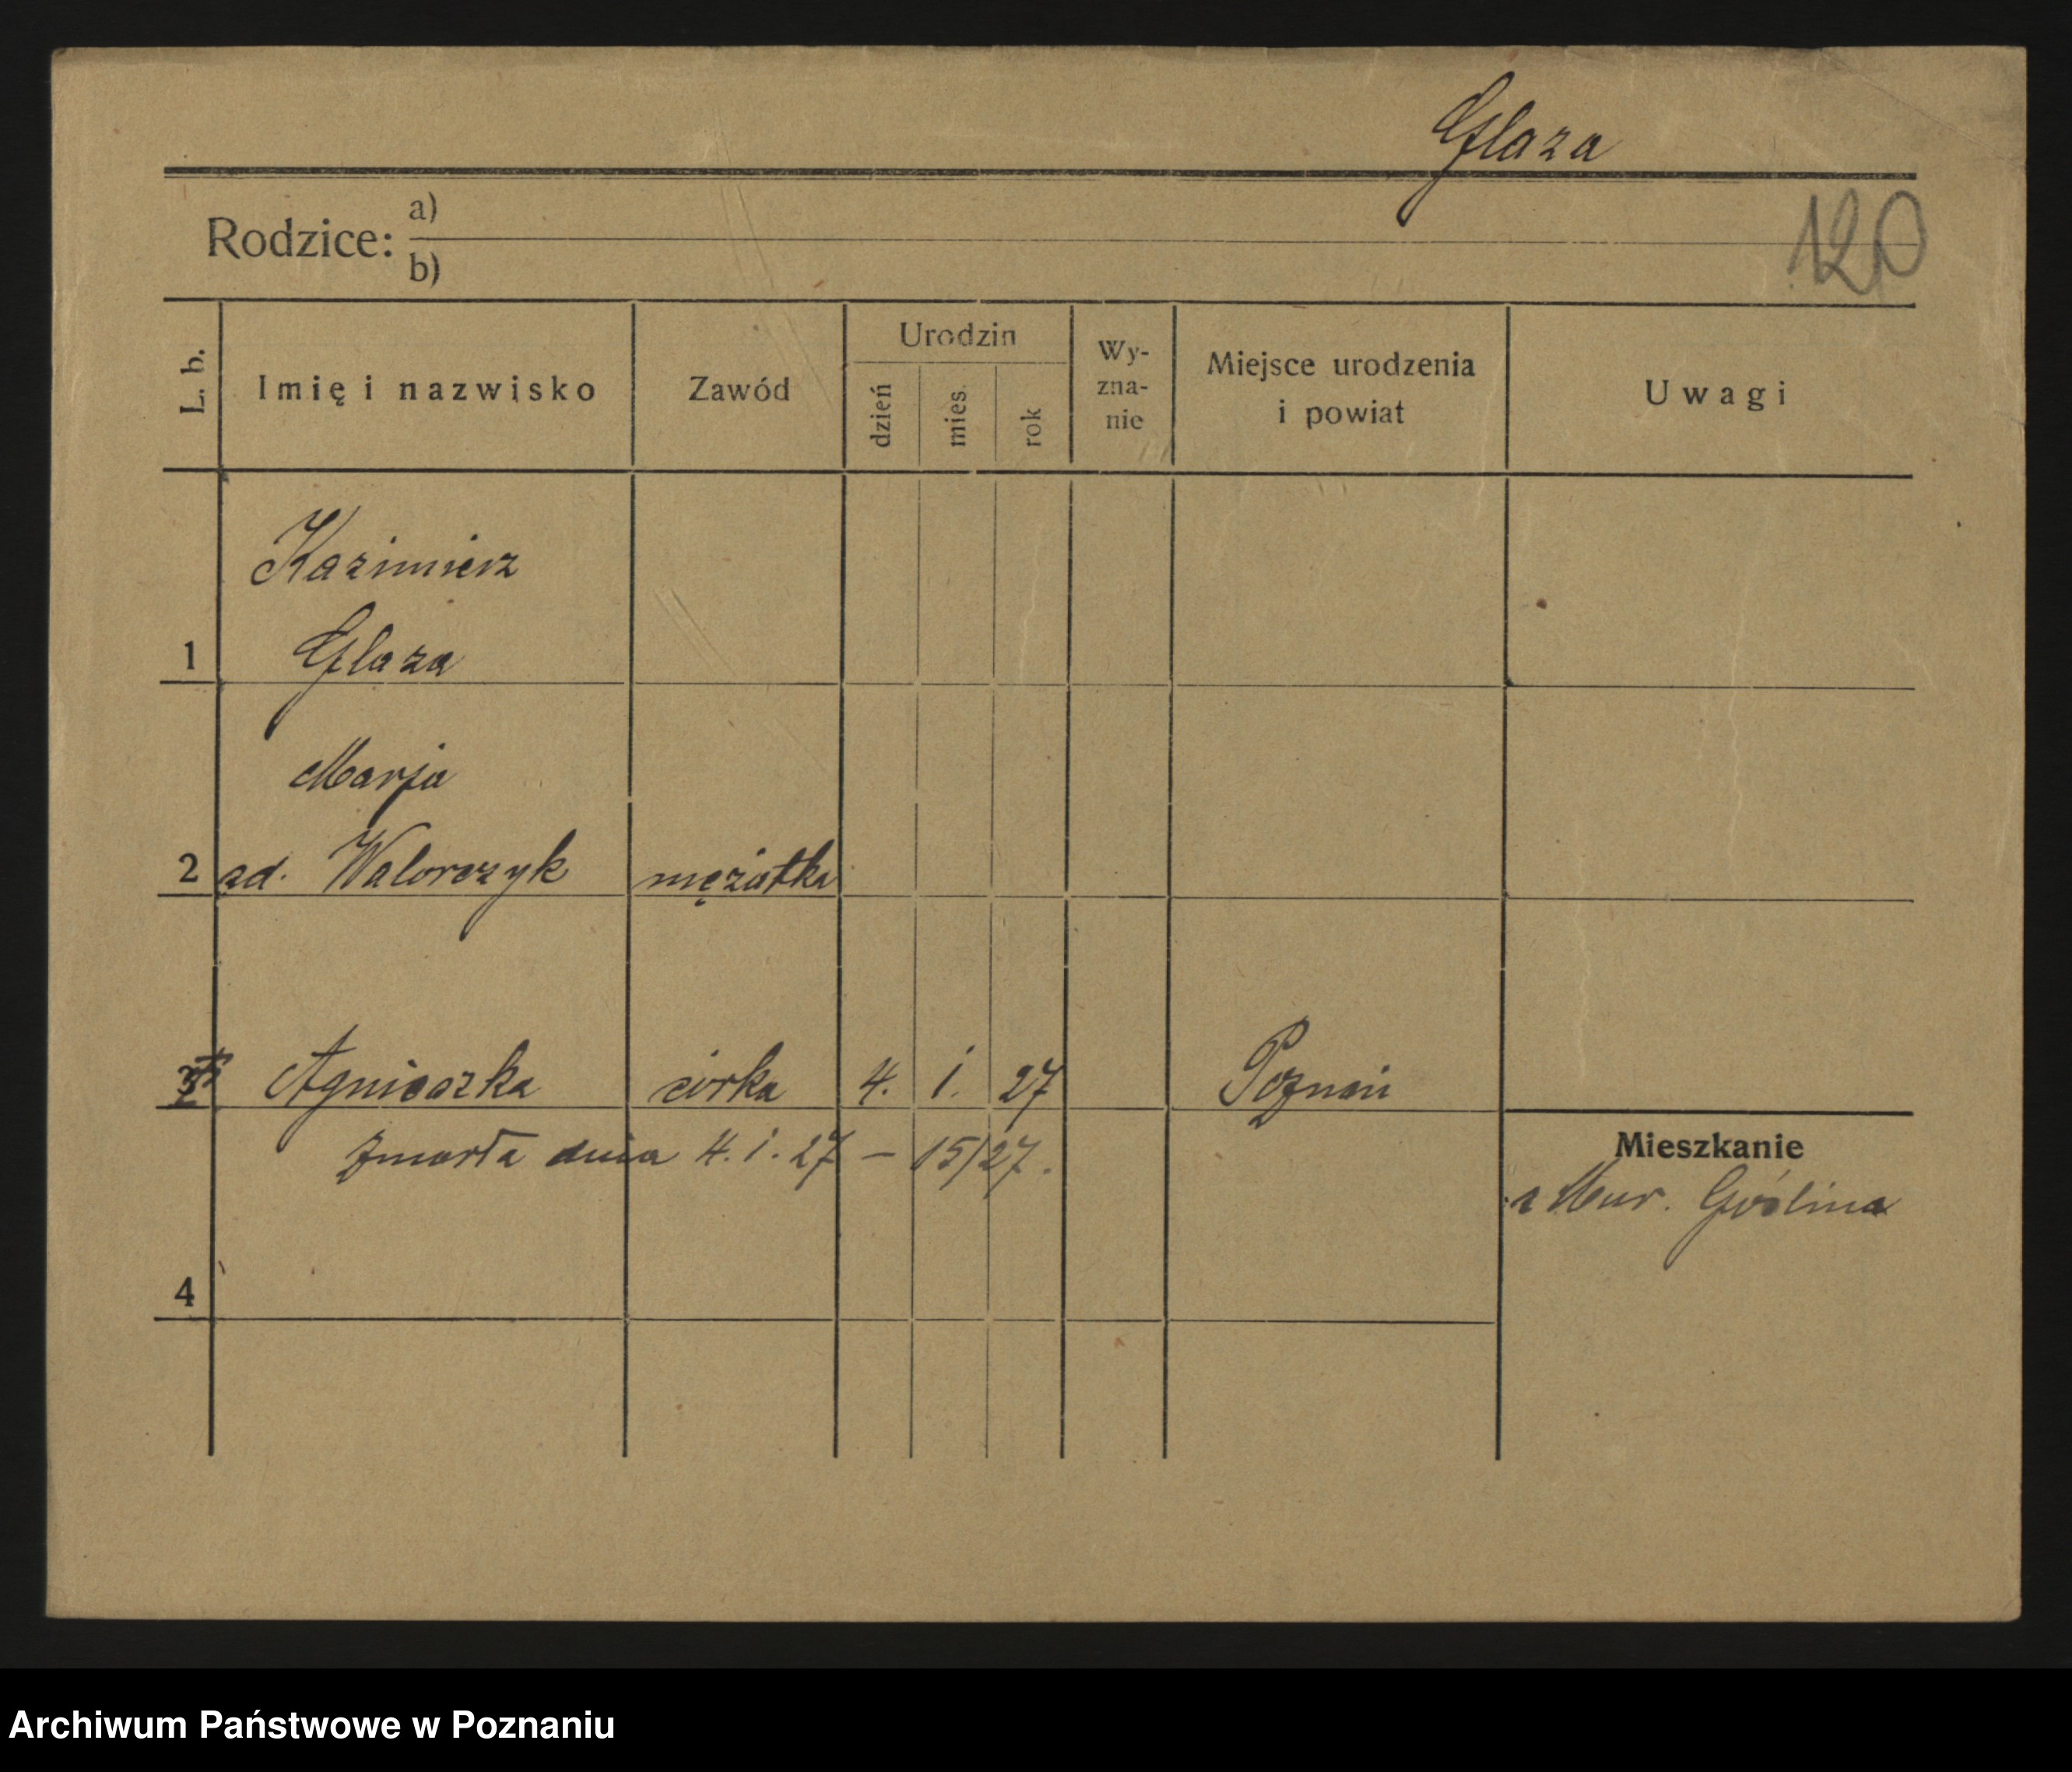 Glaza
120
Rodzice: a)
b)
L. b.
Imię i nazwisko
Zawód
Urodzin
dzień
mies.
rok
Wy-
zna-
nie
Miejsce urodzenia
i powiat
Uwagi
Kazimierz
1 Glaza
Marja
2 zd. Walorczyk mężatka
3 Agnieszka córka 4. 1. 27 Poznań
zmarła dnia 4. 1. 27 – 15/27.
Mieszkanie
Mur. Goślina
4
Archiwum Państwowe w Poznaniu